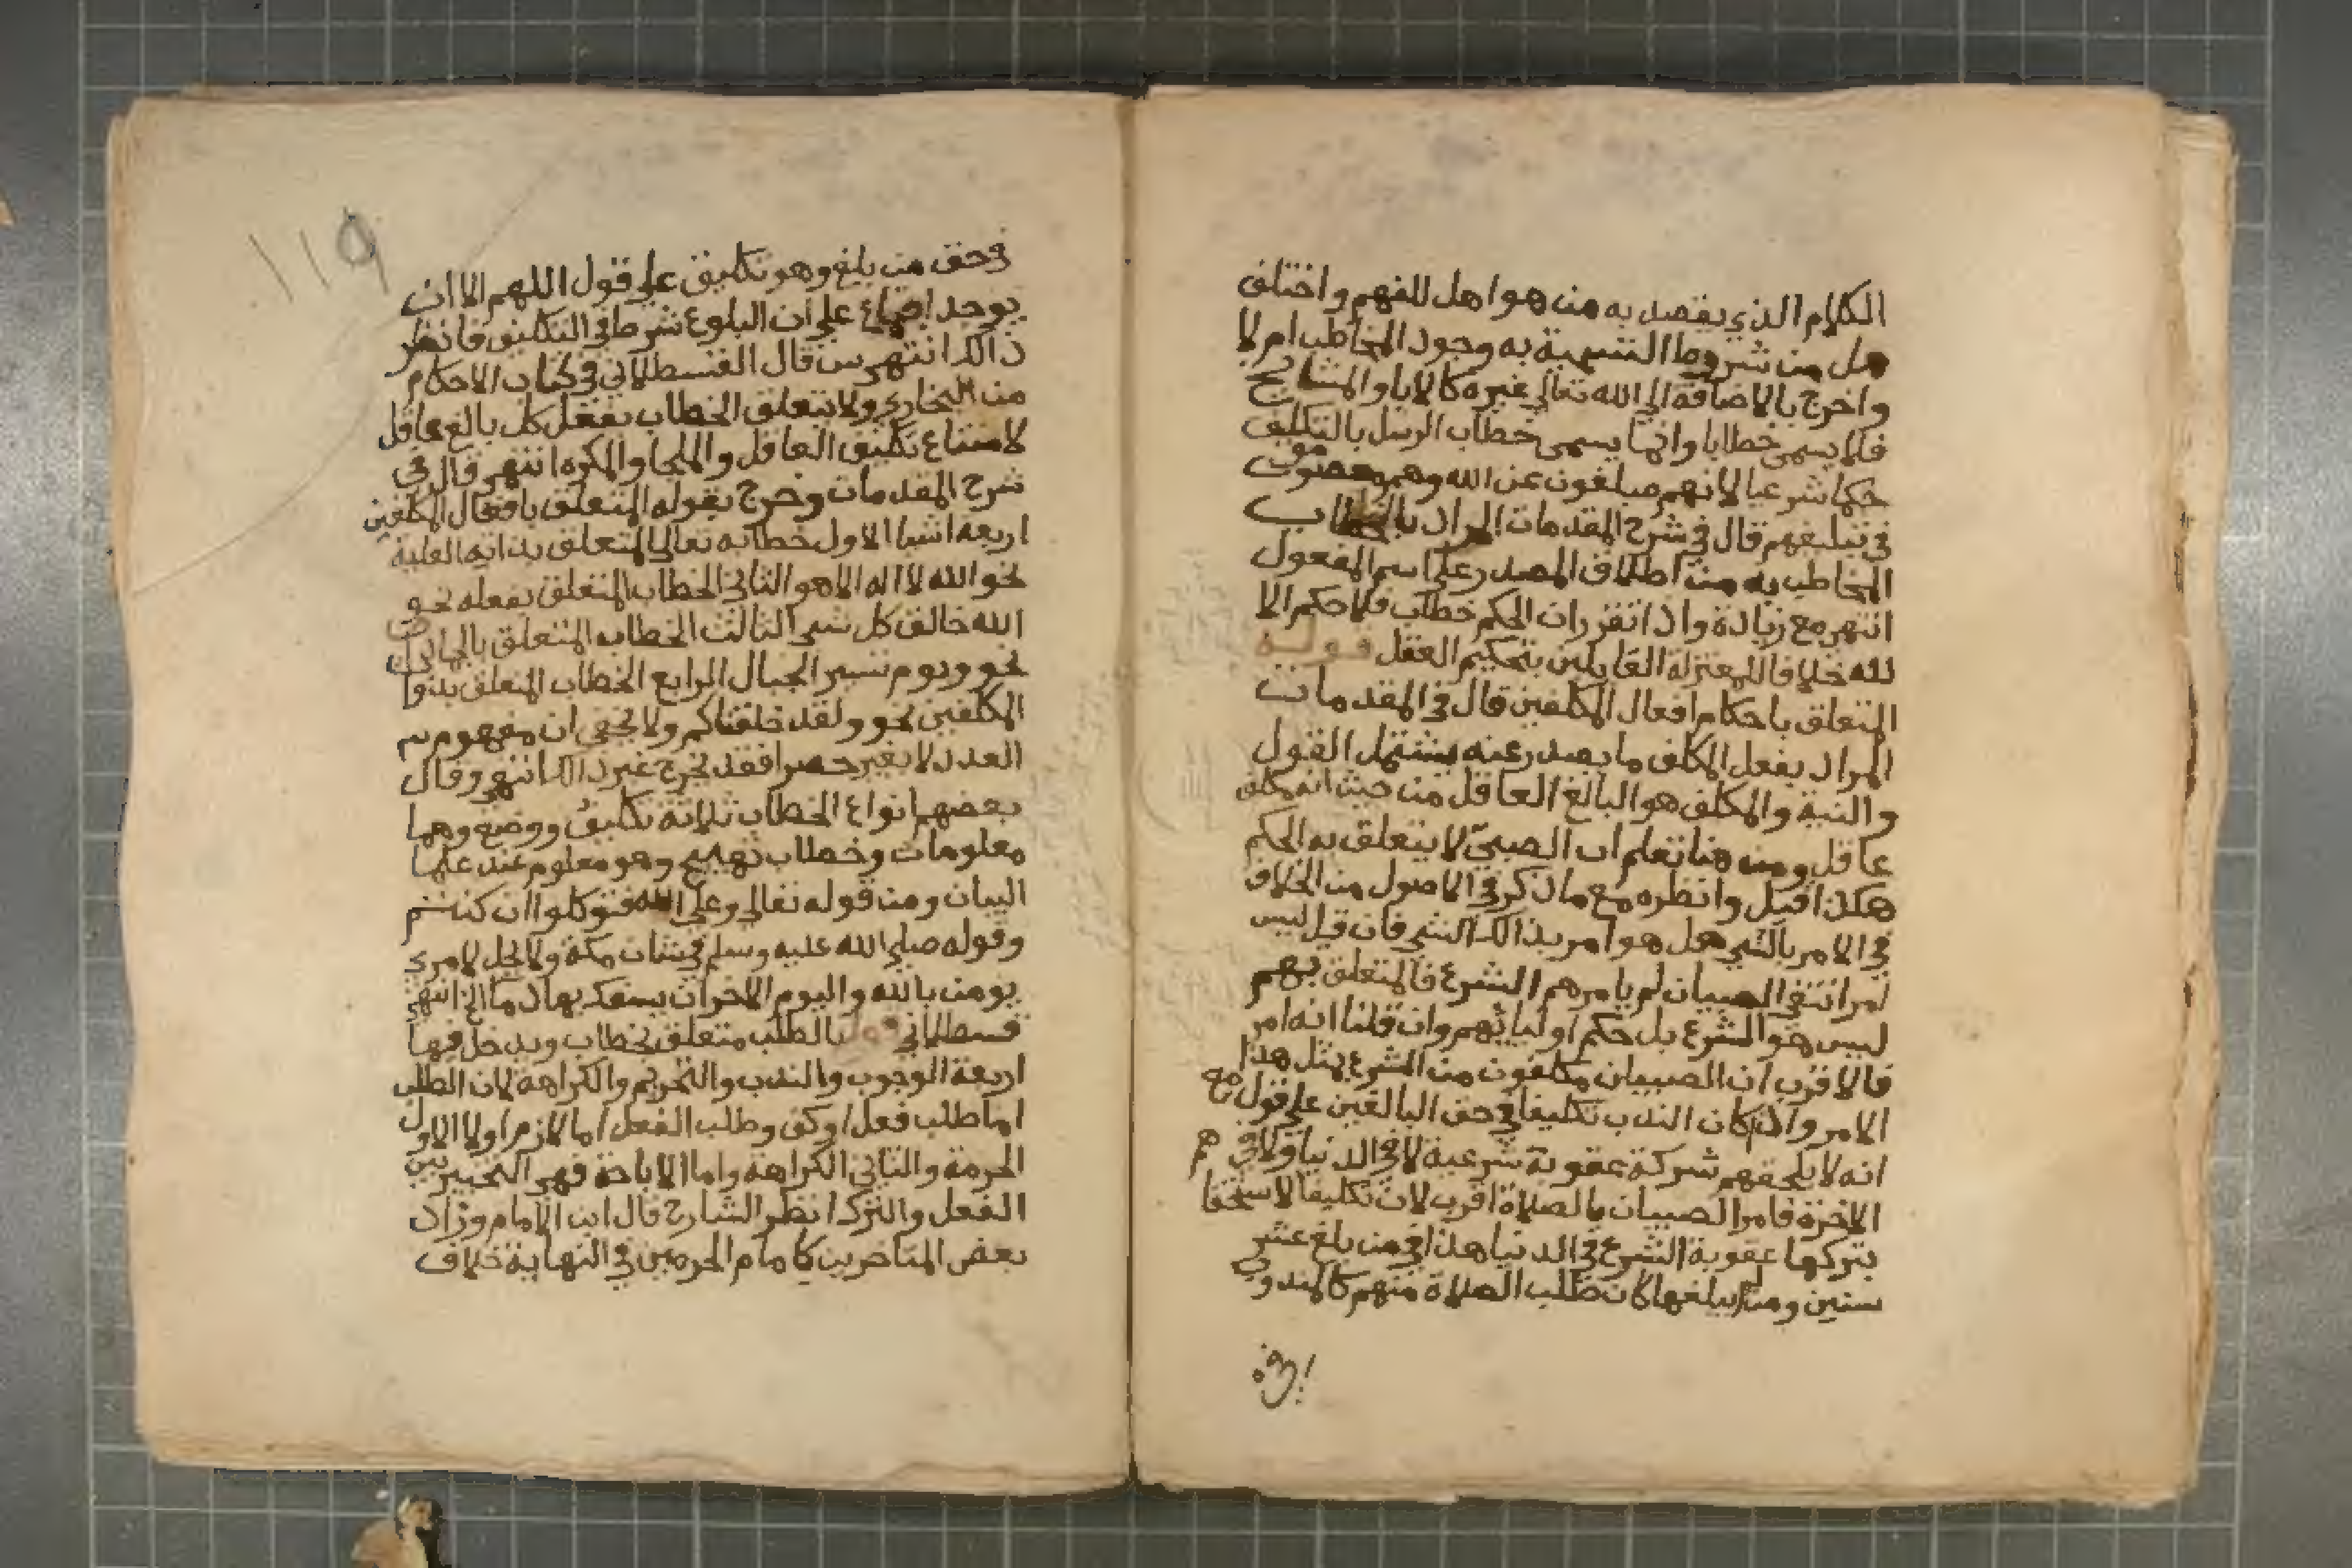 الكلام الذي يقصد به من هو اهل للفهم واختلف
هل من شروط التسمية به وجود المخاطب ام لا
واخرج بالاضافة الى الله تعالى غيره كالابا والمشايخ
فلا يسمى خطابا وانما يسمى خطاب الرسل بالتكليف
حكما شرعيا لانهم مبلغون عن الله وهم معصومون
في تبليغهم قال في شرح المقدمات المراد بالخطاب
المخاطب به من اطلاق المصدر على اسم المفعول
انتهى مع زيادة واذا تقرر ان الحكم خطاب فلا حكم الا
لله خلافا للمعتزلة القايلين بتحكيم العقل قوله
المتعلق باحكام افعال المكلفين قال في المقدمات
المراد بفعل المكلف ما يصدر عنه يشتمل القول
والنية والمكلف هو البالغ العاقل من حيث انه مكلف
عاقل ومن هنا تعلم ان الصبي لا يتعلق به الحكم
هكذا قيل وانظره مع ما ذكر في الاصول من الخلاف
في الامر بالشي هل هو امر بذالك الشي فان قيل ليس
امرا انتفى الصبيان لم يامرهم الشرع فالمتعلق بهم
ليس هو الشرع بل حكم اوليائهم وان قلنا انه امر
فالاقرب ان الصبيان مكلفون من الشرع بمثل هذا
الامر واذا كان الندب تكليفا في حق البالغين على قول مع
انه لا يلحقهم شركة عقوبة شرعية لا في الدنيا ولا في
الاخرة فامر الصبيان بالصلاة اقرب لان تكليفا لاستحقا
بتركها عقوبة الشرع في الدنيا هذا في من بلغ عشر
سنين ومن لم يبلغها كان طلب الصلاة منهم كالمندوب
في حق من بلغ وهو تكليف على قول اللهم الا ان
يوجد اجماع على ان البلوغ شرط في التكليف فانظر
ذالك انتهى س قال القسطلاني في كتاب الاحكام
من البخاري ولا يتعلق الخطاب بفعل كل بالغ عاقل
لامتناع تكليف الغافل والملجا والمكره انتهى قال في
شرح المقدمات وخرج بقوله المتعلق بافعال المكلفين
اربعة اشيا الاول خطابه تعالى المتعلق بذاته العلية
نحو الله لا اله الا هو الثاني الخطاب المتعلق بفعله نحو
الله خالق كل شي الثالث الخطاب المتعلق بالجمادات
نحو ويوم نسير الجبال الرابع الخطاب المتعلق بذوات
المكلفين نحو ولقد خلقناكم ولا يخفى ان مفهوم
العدد لا يغير حصرا فقد يخرج غير ذالك انتهى وقال
بعضهم انواع الخطاب ثلاثة تكليف ووضع وهما
معلومات وخطاب تهييج وهو معلوم عند علما
البيان ومن قوله تعالى وعلى الله فتوكلوا ان كنتم
وقوله صلى الله عليه وسلم في شان مكة ولا يحل لامرئ
يومن بالله واليوم الاخر ان يسفك بها دما الخ انتهى
قسطلاني قوله بالطلب متعلق بخطاب ويدخل فيها
اربعة الوجوب والندب والتحريم والكراهة لان الطلب
اما طلب فعل او كف وطلب الفعل اما لازم او لا الاول
الحرمة والثاني الكراهة واما الاباحة فهي التخيير بين
الفعل والترك انظر الشارح قال ابن الامام وزاد
بعض المتاخرين كامام الحرمين في النهاية خلاف
١١٩